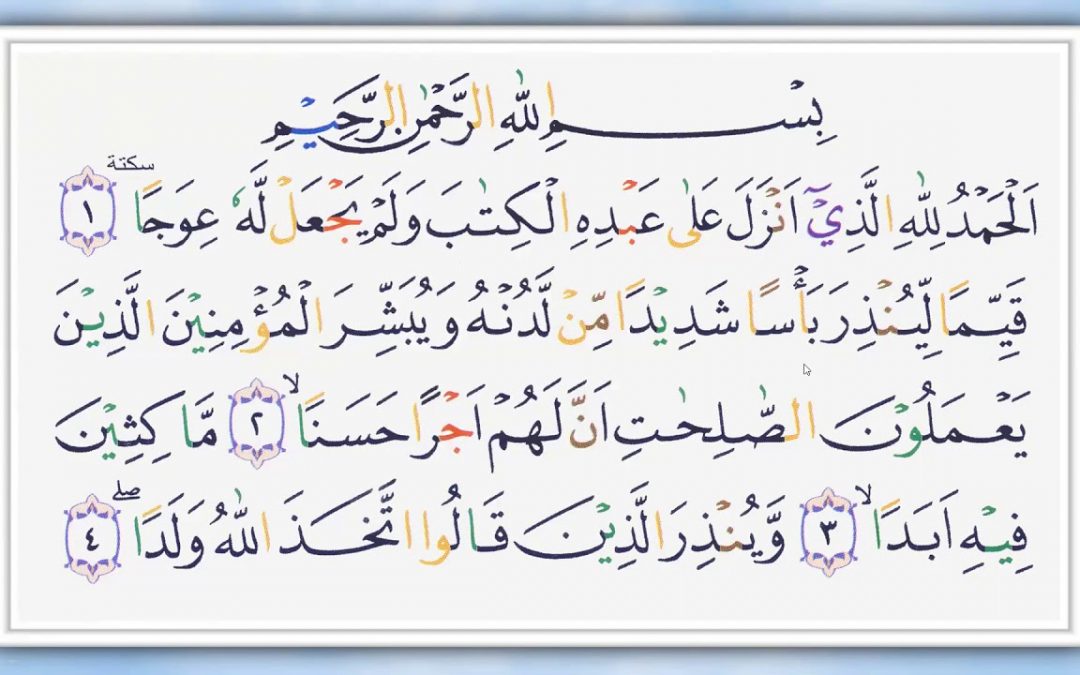 بِسْمِ اللّٰهِ الرَّحْمٰنِ الرَّحِيْمِ
اَلْحَمْدُ لِلّٰهِ الَّذِيْٓ اَنْزَلَ عَلٰى عَبْدِهِ الْكِتٰبَ وَلَمْ يَجْعَلْ لَّهٗ عِوَجًا سكتة ١
قَيِّمًا لِّيُنْذِرَ بَأْسًا شَدِيْدًا مِّنْ لَّدُنْهُ وَيُبَشِّرَ الْمُؤْمِنِيْنَ الَّذِيْنَ
يَعْمَلُوْنَ الصّٰلِحٰتِ اَنَّ لَهُمْ اَجْرًا حَسَنًاۙ ٢ مَّاكِثِيْنَ
فِيْهِ اَبَدًاۙ ٣ وَّيُنْذِرَ الَّذِيْنَ قَالُوا اتَّخَذَ اللّٰهُ وَلَدًاۖ ٤